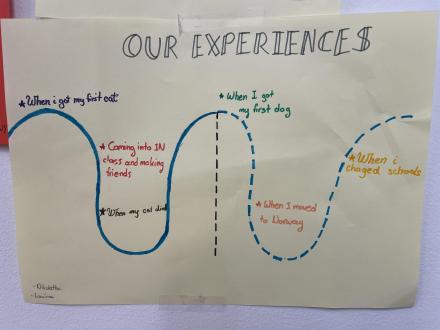 OUR EXPERIENCES
* When i got my first cat
* When I got
my first dog
* Coming into IN
class and making
friends
* When my cat died
* When I moved
to Norway
* When i
chaged schools